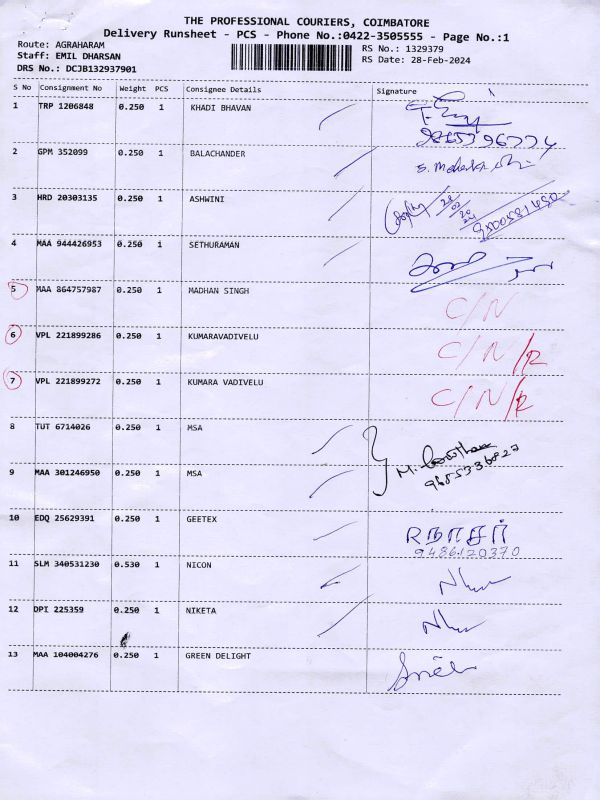 THE PROFESSIONAL COURIERS, COIMBATORE
Delivery Runsheet - PCS - Phone No.:0422-3505555 - Page No.:1
Route: AGRAHARAM
Staff: EMIL DHARSAN
DRS No.: DCJB132937901
RS No.: 1329379
RS Date: 28-Feb-2024
S No Consignment No Weight PCS Consignee Details Signature
1 TRP 1206848 0.250 1 KHADI BHAVAN
2 GPM 352099 0.250 1 BALACHANDER
3 HRD 20303135 0.250 1 ASHWINI
4 MAA 944426953 0.250 1 SETHURAMAN
5 MAA 864757987 0.250 1 MADHAN SINGH C/N
6 VPL 221899286 0.250 1 KUMARAVADIVELU C/N/R
7 VPL 221899272 0.250 1 KUMARA VADIVELU C/N/R
8 TUT 6714026 0.250 1 MSA
9 MAA 301246950 0.250 1 MSA
10 EDQ 25629391 0.250 1 GEETEX Rநாசர்
9486120370
11 SLM 340531230 0.530 1 NICON
12 DPI 225359 0.250 1 NIKETA
13 MAA 104004276 0.250 1 GREEN DELIGHT